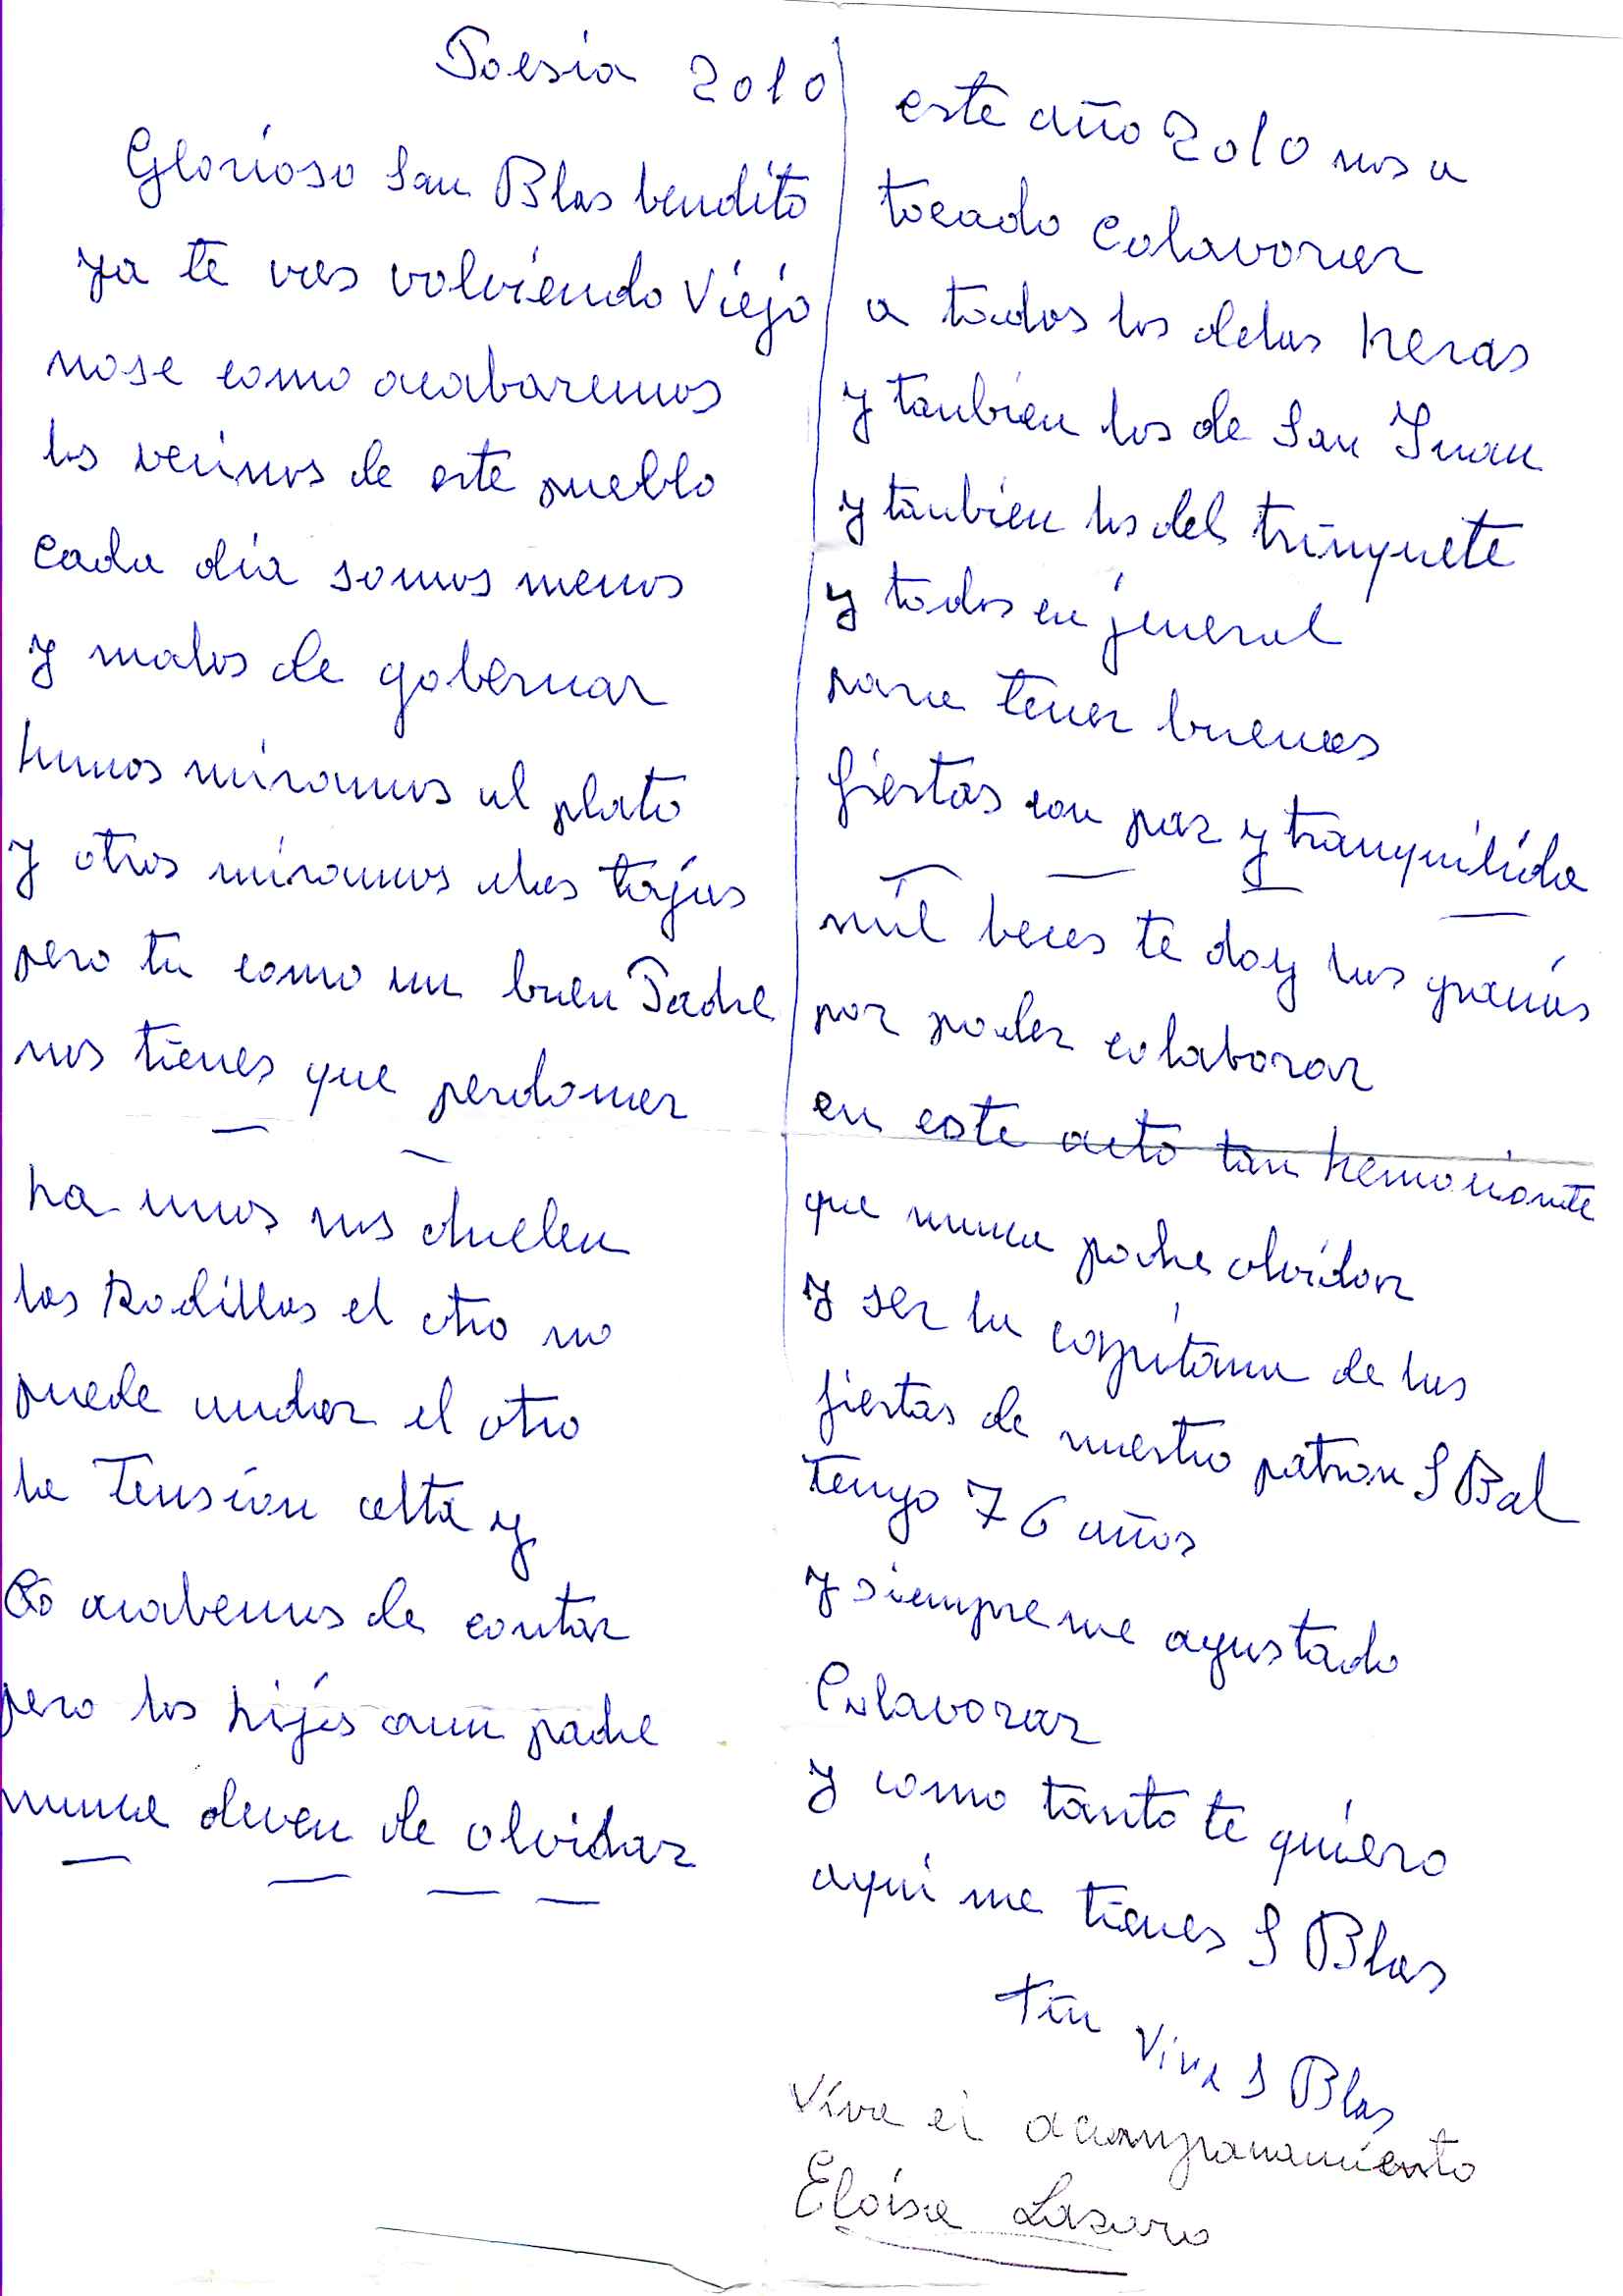 Poesia 2010
Glorioso San Blas bendito
ya te vas volviendo viejo
nose como acabaremos
los vecinos de este pueblo
cada dia somos menos
y malos de gobernar
hunos miramos al plato
y otros miramos alas tajas
pero tu como un buen Padre
nos tienes que perdonar
ha unos nos duelen
las Rodillas el otro no
puede andar el otro
la Tension alta y
lo acabemos de contar
pero los hijos aun padre
nunca deven de olvidar
este año 2010 nos a
tocado colavorar
a todos los delas heras
y tanbien los de San Juan
y tanbien los del trinquete
y todos en jeneral
para tener buenas
fiestas con paz y tranquilida
mil beces te doy las gracias
por poder colaborar
en este acto tan hemocionante
que nunca podre olvidar
y ser la capitana de las
fiestas de nuestro patron S Bal
tengo 76 años
y siempre me agustado
Colavorar
y como tanto te quiero
aqui me tienes S Blas
Fin Viva S Blas
Viva el acompanamiento
Eloisa Lasaro